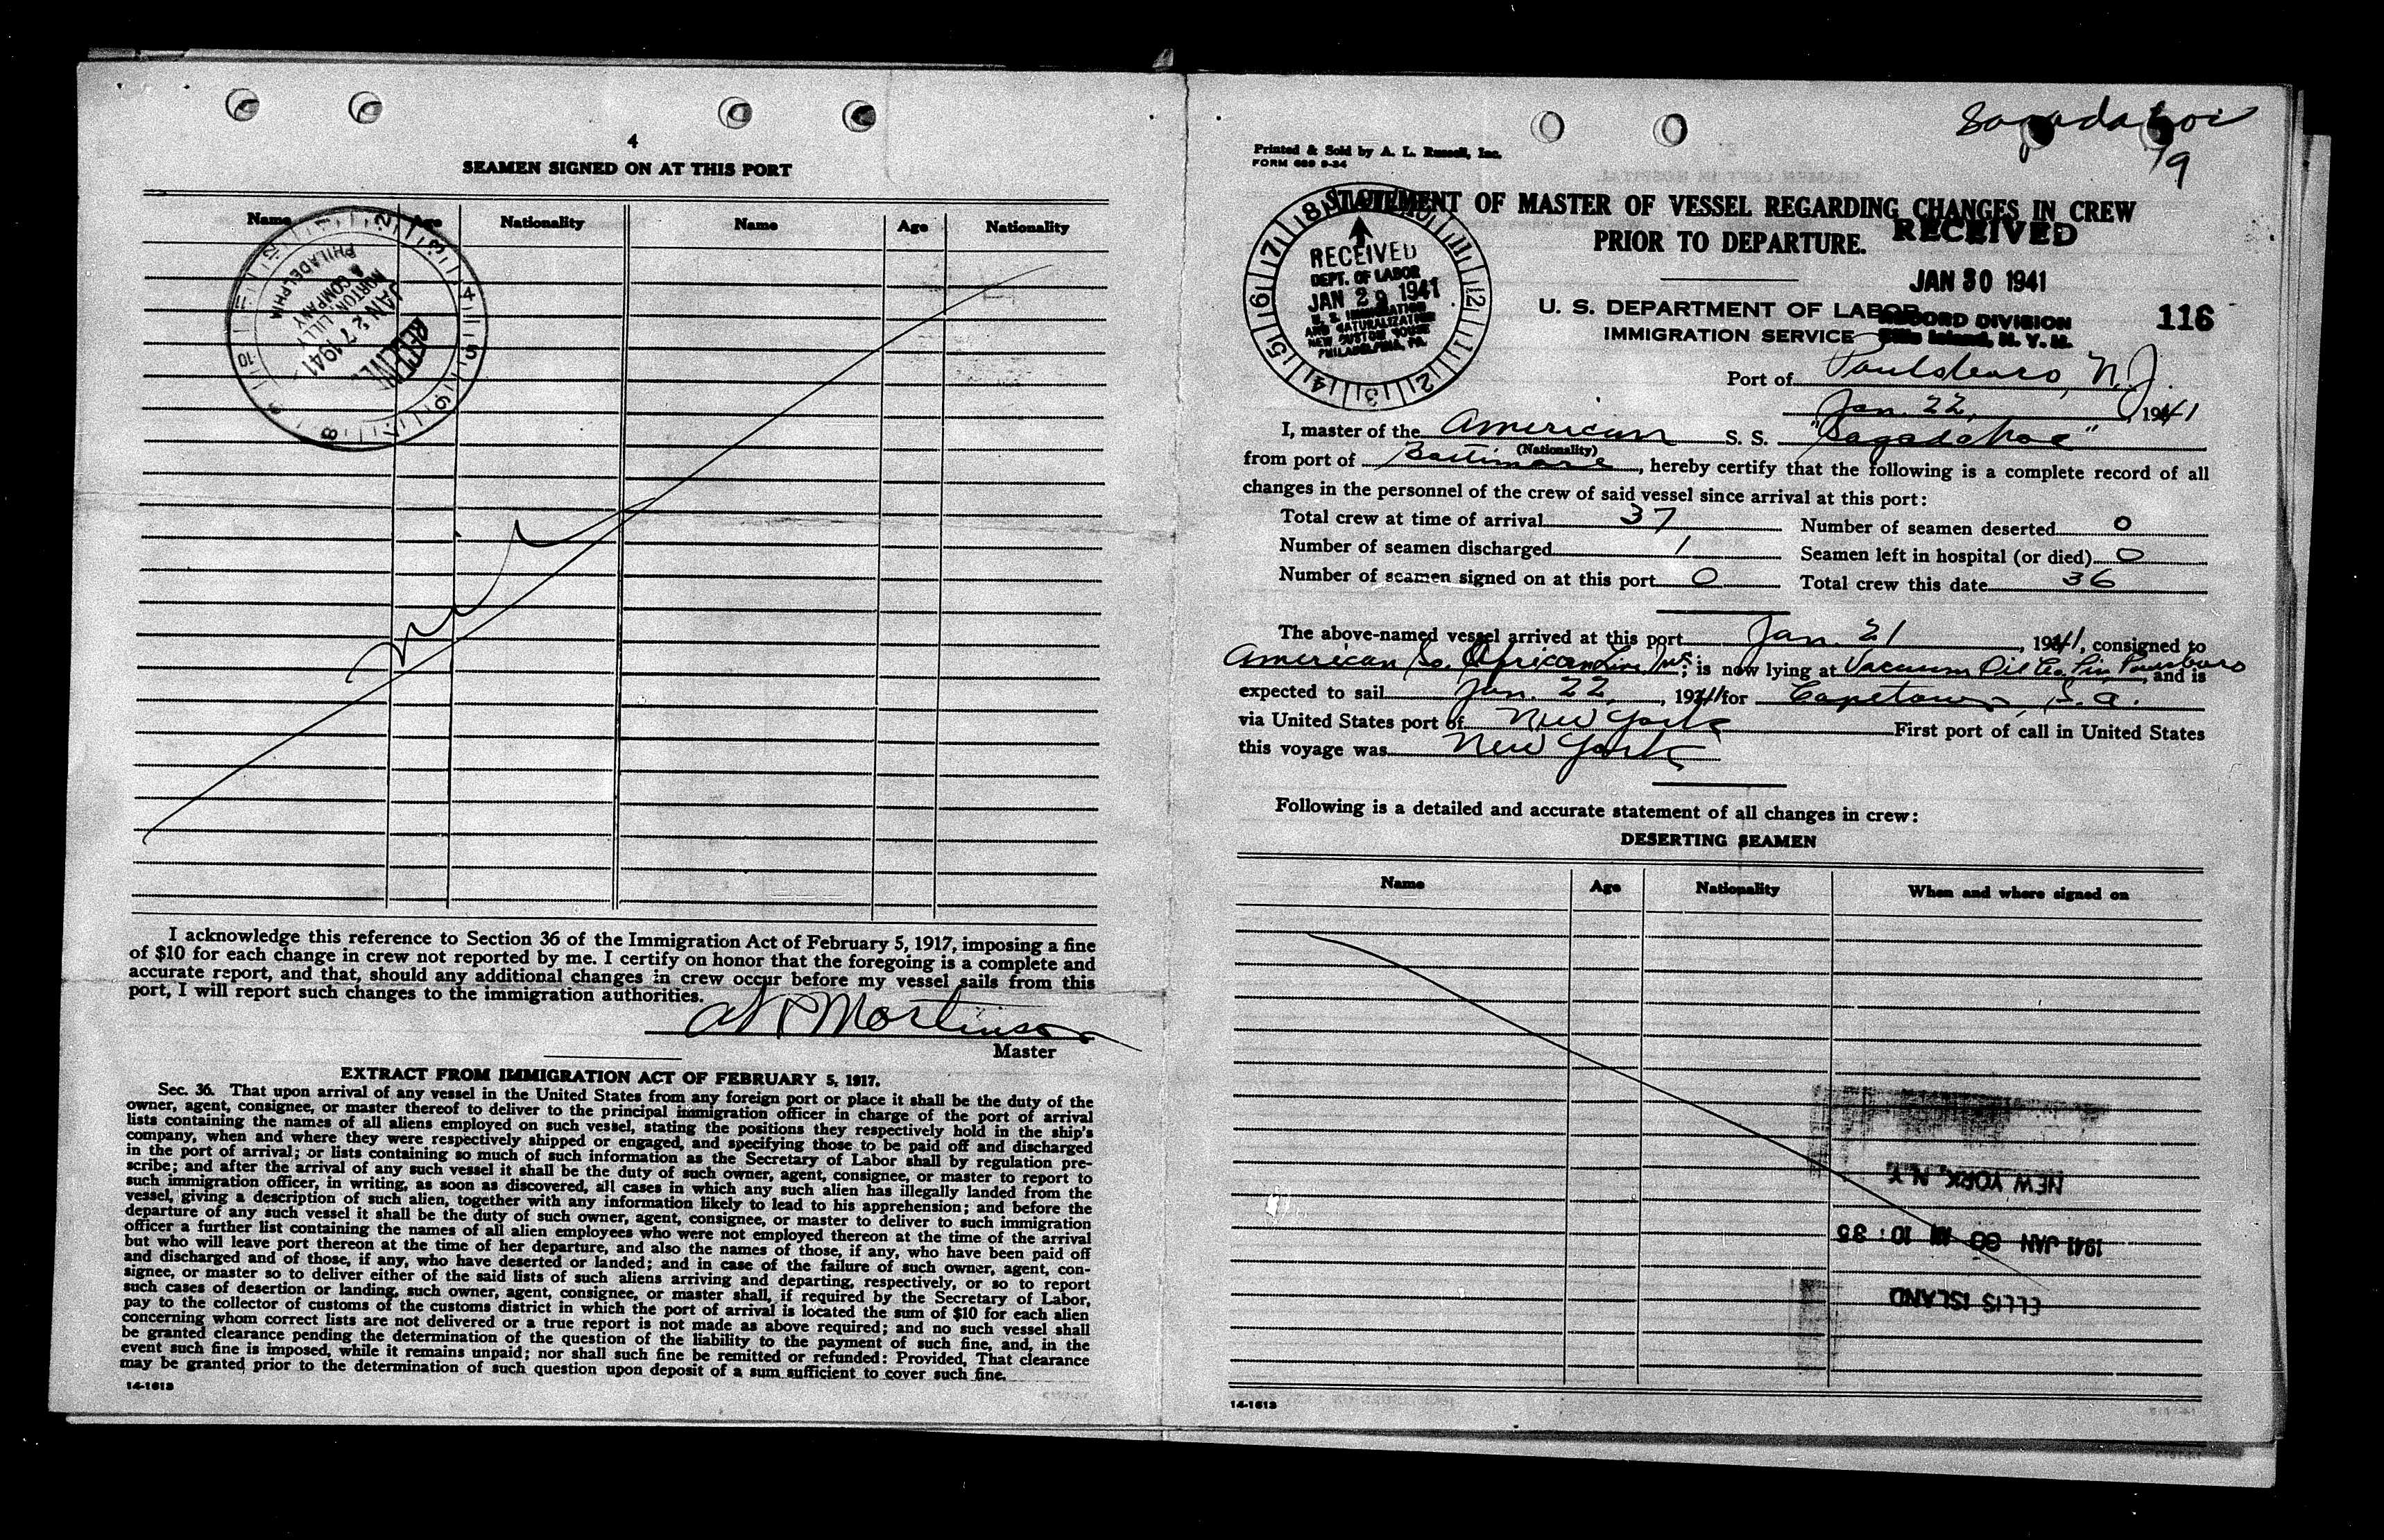 4
SEAMEN SIGNED ON AT THIS PORT
Name Age Nationality Name Age Nationality
RECEIVED
JAN 27 1941
MORTON LILLY
& COMPANY
PHILADELPHIA
I acknowledge this reference to Section 36 of the Immigration Act of February 5, 1917, imposing a fine
of $10 for each change in crew not reported by me. I certify on honor that the foregoing is a complete and
accurate report, and that, should any additional changes in crew occur before my vessel sails from this
port, I will report such changes to the immigration authorities.
Martinson
Master
EXTRACT FROM IMMIGRATION ACT OF FEBRUARY 5, 1917.
Sec. 36. That upon arrival of any vessel in the United States from any foreign port or place it shall be the duty of the
owner, agent, consignee, or master thereof to deliver to the principal immigration officer in charge of the port of arrival
lists containing the names of all aliens employed on such vessel, stating the positions they respectively hold in the ship's
company, when and where they were respectively shipped or engaged, and specifying those to be paid off and discharged
in the port of arrival; or lists containing so much of such information as the Secretary of Labor shall by regulation pre-
scribe; and after the arrival of any such vessel it shall be the duty of such owner, agent, consignee, or master to report to
such immigration officer, in writing, as soon as discovered, all cases in which any such alien has illegally landed from the
vessel, giving a description of such alien, together with any information likely to lead to his apprehension; and before the
departure of any such vessel it shall be the duty of such owner, agent, consignee, or master to deliver to such immigration
officer a further list containing the names of all alien employees who were not employed thereon at the time of the arrival
but who will leave port thereon at the time of her departure, and also the names of those, if any, who have been paid off
and discharged and of those, if any, who have deserted or landed; and in case of the failure of such owner, agent, con-
signee, or master so to deliver either of the said lists of such aliens arriving and departing, respectively, or so to report
such cases of desertion or landing, such owner, agent, consignee, or master shall, if required by the Secretary of Labor,
pay to the collector of customs of the customs district in which the port of arrival is located the sum of $10 for each alien
concerning whom correct lists are not delivered or a true report is not made as above required; and no such vessel shall
be granted clearance pending the determination of the question of the liability to the payment of such fine, and, in the
event such fine is imposed, while it remains unpaid; nor shall such fine be remitted or refunded: Provided, That clearance
may be granted prior to the determination of such question upon deposit of a sum sufficient to cover such fine.
14-1613
19
Printed & Sold by A. L. Russell, Inc.
FORM 689 9-34
STATEMENT OF MASTER OF VESSEL REGARDING CHANGES IN CREW
PRIOR TO DEPARTURE.
RECEIVED
JAN 30 1941
RECORD DIVISION
Ellis Island, N. Y. H.
RECEIVED
DEPT. OF LABOR
JAN 29 1941
U. S. IMMIGRATION
AND NATURALIZATION
NEW CUSTOM HOUSE
PHILADELPHIA, PA.
U. S. DEPARTMENT OF LABOR
IMMIGRATION SERVICE
116
Port of Paulsboro, N.J.
Jan. 22, 1941
I, master of the American S. S. "Sagadahoc"
(Nationality)
from port of Baltimore, hereby certify that the following is a complete record of all
changes in the personnel of the crew of said vessel since arrival at this port:
Total crew at time of arrival 37 Number of seamen deserted 0
Number of seamen discharged 1 Seamen left in hospital (or died) 0
Number of seamen signed on at this port 0 Total crew this date 36
The above-named vessel arrived at this port Jan. 21, 1941, consigned to
American So. African Line Inc.; is now lying at Vacuum Oil Co. Pier Paulsboro, and is
expected to sail Jan. 22, 1941 for Capetown, S.A.
via United States port of New York First port of call in United States
this voyage was New York
Following is a detailed and accurate statement of all changes in crew:
DESERTING SEAMEN
Name Age Nationality When and where signed on
ELLIS ISLAND
1941 JAN 30 AM 10:35
NEW YORK, N.Y.
14-1613